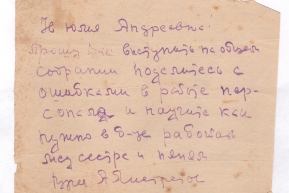 Юлия Андреевна!
Прошу Вас выступить на общем
собрании поделитесь с
ошибками в работе пер-
сонала и научите как
нужно в б-це работать
медсестре и няня